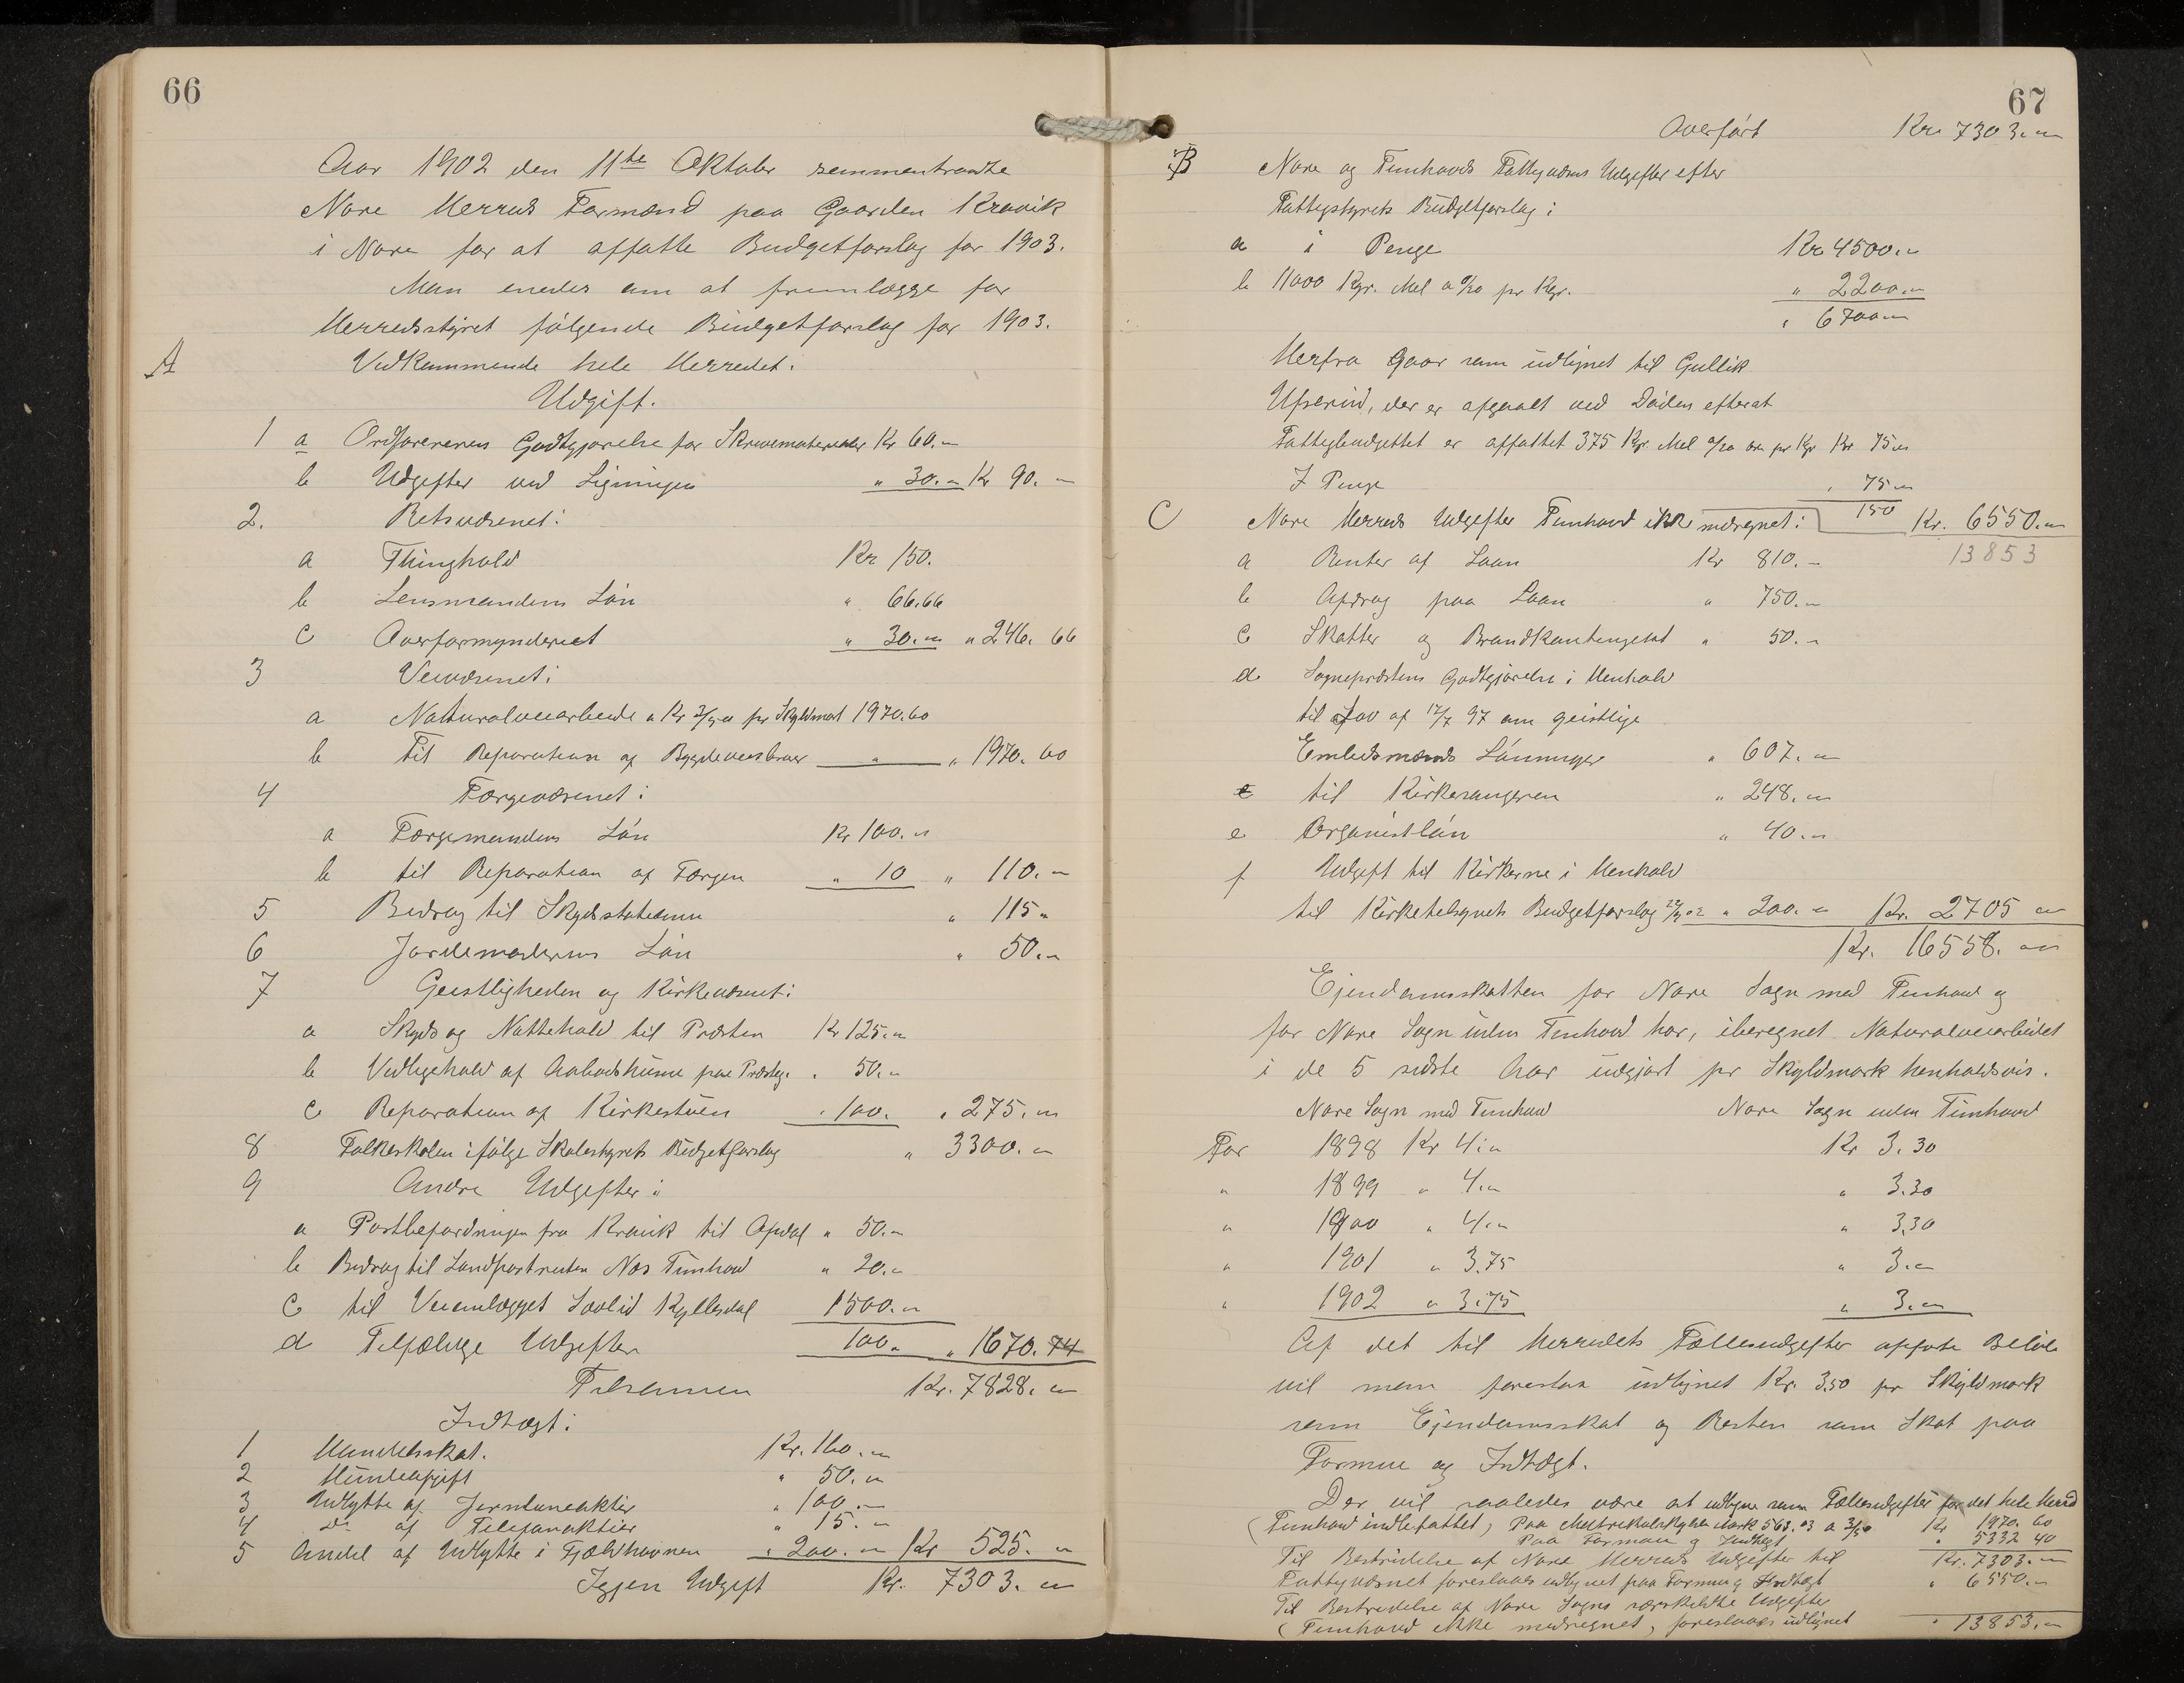 66
Aar 1902 den 11te Oktober sammentraadte
Nore Herreds Formænd paa Gaarden Kravik
i Nore for at affatte Budgetforslag for 1903.
Man enedes om at fremlægge for
Herredsstyret følgende Budgetforslag for 1903.
A Vedkommende hele Herredet:
Udgift.
1 a Ordførerens Godtgjørelse for Skrivematerialer Kr 60.-
b Udgifter ved Ligningen " 30.- Kr 90.-
2. Retsvæsenet:
a Thinghold Kr 150.
b Lensmandens Løn " 66.66
c Overformynderiet " 30.- " 246.66
3 Veivæsenet:
a Naturalveiarbeide a Kr 3/50 pr Skyldmark 1970.60
b til Reparation af Bygdeveisbroer " " 1970.60
4 Færgevæsenet:
a Færgemandens Løn Kr 100.-
b til Reparation af Færgen " 10 " 110.-
5 Bidrag til Skydsstationen " 115 "
6 Jordemoderens Løn " 50.-
7 Geistligheden og Kirkevæsenet:
a Skyds og Nattehold til Præsten Kr 125.-
b Vedligehold af Aabodshusene paa Præsteg. " 50.-
c Reparation af Kirkestuen " 100. " 275.-
8 Folkeskolen ifølge Skolestyrets Budgetforslag " 3300.-
9 Andre Udgifter:
a Postbefordringen fra Kravik til Opdal " 50.-
b Bidrag til Landpostruten Nes Tunhovd " 20.-
c til Veianlægget 1500.-
d Tilfældige Udgifter 100. " 1670.74
Tilsammen Kr. 7828.-
Indtægt:
1 Handelsskat. Kr. 160.-
2 Hundeafgift " 50.-
3 Udbytte af Jernbaneaktier " 100.-
4 Do af Telefonaktier " 15.-
5 Andel af Udbytte i Fjeldhavnen " 200.- Kr 525.-
Igjen Udgift Kr. 7303.-
67
Overført Kr. 7303.-
B Nore og Tunhovds Fattigvæsens Udgifter efter
Fattigstyrets Budgetforslag:
a i Penge Kr 4500.-
b 11000 Kgr. Mel a 0/20 pr Kgr. " 2200.-
" 6700.-
Herfra gaar som udlignet til Gullik
der er afgaaet ved Døden efterat
Fattigbudgettet er affattet 375 Kgr. Mel a/20 øre pr Kgr Kr 75.-
I Penge " 75.-
150 Kr. 6550.-
C Nore Herreds Udgifter Tunhovd ikke medregnet:
13853
a Renter af Laan Kr 810.-
b Afdrag paa Laan " 750.-
c Skatter og Brandkontingent " 50.-
d Sognepræstens Godtgjørelse i Henhold
til Lov af 12/7 97 om geistlige
Embedsmænds Lønninger " 607.-
e til Kirkesangeren " 248.-
e Organistløn " 40.-
f Udgift til Kirkerne i Henhold
til Kirketilsynets Budgetforslag 22/9 02 " 200.- Kr. 2705.-
Kr. 16558.-
Ejendomsskatten for Nore Sogn med Tunhovd og
for Nore Sogn uden Tunhovd har, iberegnet Naturalveiarbeidet
i de 5 sidste Aar udgjort pr Skyldmark henholdsvis.
Nore Sogn med Tunhovd Nore Sogn uden Tunhovd
For 1898 Kr 4.- Kr 3.30
" 1899 " 4.- " 3.30
" 1900 " 4.- " 3.30
" 1901 " 3.75 " 3.-
" 1902 " 3.75 " 3.-
Af det til Herredets Fællesudgifter opførte Beløb
vil man foreslaa udlignet Kr. 3.50 pr Skyldmark
som Ejendomsskat og Resten som Skat paa
Formue og Indtægt.
Der vil saaledes være at udligne som Fællesudgifter for det hele Herred
(Tunhovd indbefattet) Paa Matrikulskylden Mark 563.03 a 3/50 Kr 1970.60
Paa Formue og Indtægt " 5332 40
Kr. 7303.-
Til Bestridelse af Nore Herreds Udgifter til
Fattigvæsenet foreslaaes udlignet paa Formue og Indtægt " 6550.-
Til Bestridelse af Nore Sogns særskildte Udgifter
(Tunhovd ikke medregnet, foreslaaes udlignet " 13853.-